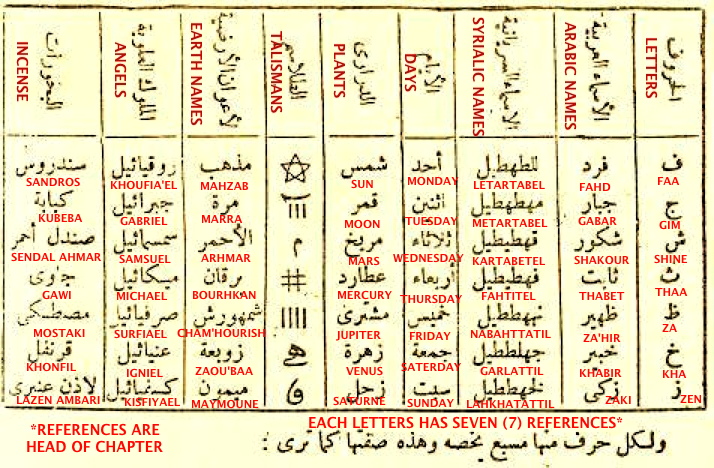 الحروف الأسماء العربية الاسماء السريانية الأيام الدراري الطلاسم الأعوان الأرضية الملوك العلوية البخورات
INCENSE ANGELS EARTH NAMES TALISMANS PLANTS DAYS SYRIALIC NAMES ARABIC NAMES LETTERS
ف فرد للطهطيل أحد شمس مذهب روقيائيل سندروس
SANDROS KHOUFIA'EL MAHZAB SUN MONDAY LETARTABEL FAHD FAA
ج جبار مهطهطيل اثنين قمر مرة جبرائيل كبابة
KUBEBA GABRIEL MARRA MOON TUESDAY METARTABEL GABAR GIM
ش شكور قهطيطيل ثلاثاء مريخ الأحمر سمسمائيل صندل أحمر
SENDAL AHMAR SAMSUEL ARHMAR MARS WEDNESDAY KARTABETEL SHAKOUR SHINE
ث ثابت فهطبطيل أربعاء عطارد برقان ميكائيل جاوى
GAWI MICHAEL BOURHKAN MERCURY THURSDAY FAHTITEL THABET THAA
ظ ظهير نهططيل خميس مشترى شمهورش صرفيائيل مصطكى
MOSTAKI SURFIAEL CHAM'HOURISH JUPITER FRIDAY NABAHTTATIL ZA'HIR ZA
خ خبير جهلططيل جمعة زهرة زوبعة عنيائيل قرنفل
KHONFIL IGNIEL ZAOU'BAA VENUS SATERDAY GARLATTIL KHABIR KHA
ز زكى لخهططيل سبت زحل ميمون كسفيائيل لاذن عنبرى
LAZEN AMBARI KISFIYAEL MAYMOUNE SATURNE SUNDAY LAHKHATATTIL ZAKI ZEN
*REFERENCES ARE
HEAD OF CHAPTER
EACH LETTERS HAS SEVEN (7) REFERENCES*
ولكل حرف منها مسبع يخصه وهذه صفتها كما ترى :